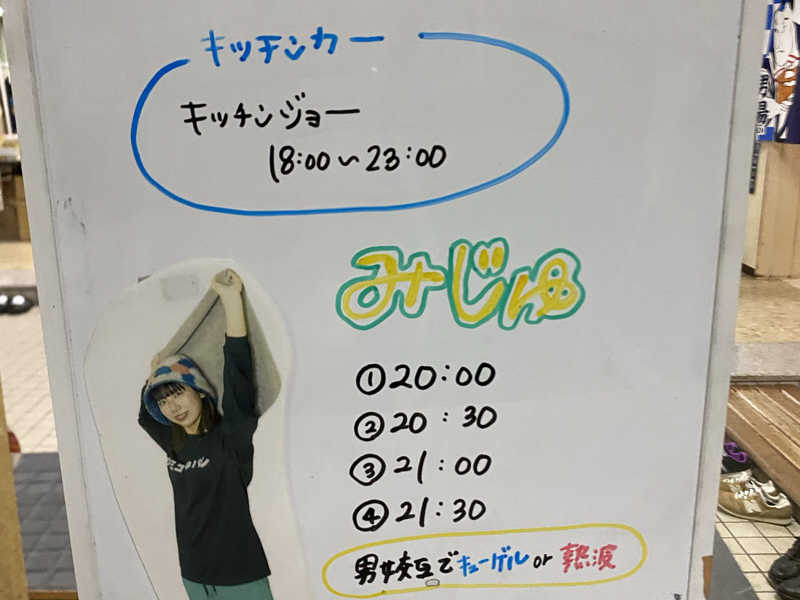 キッチンカー
キッチンジョー
18:00～23:00
みーじゅ
①20:00
②20:30
③21:00
④21:30
男女交互でキューゲル or 熱波